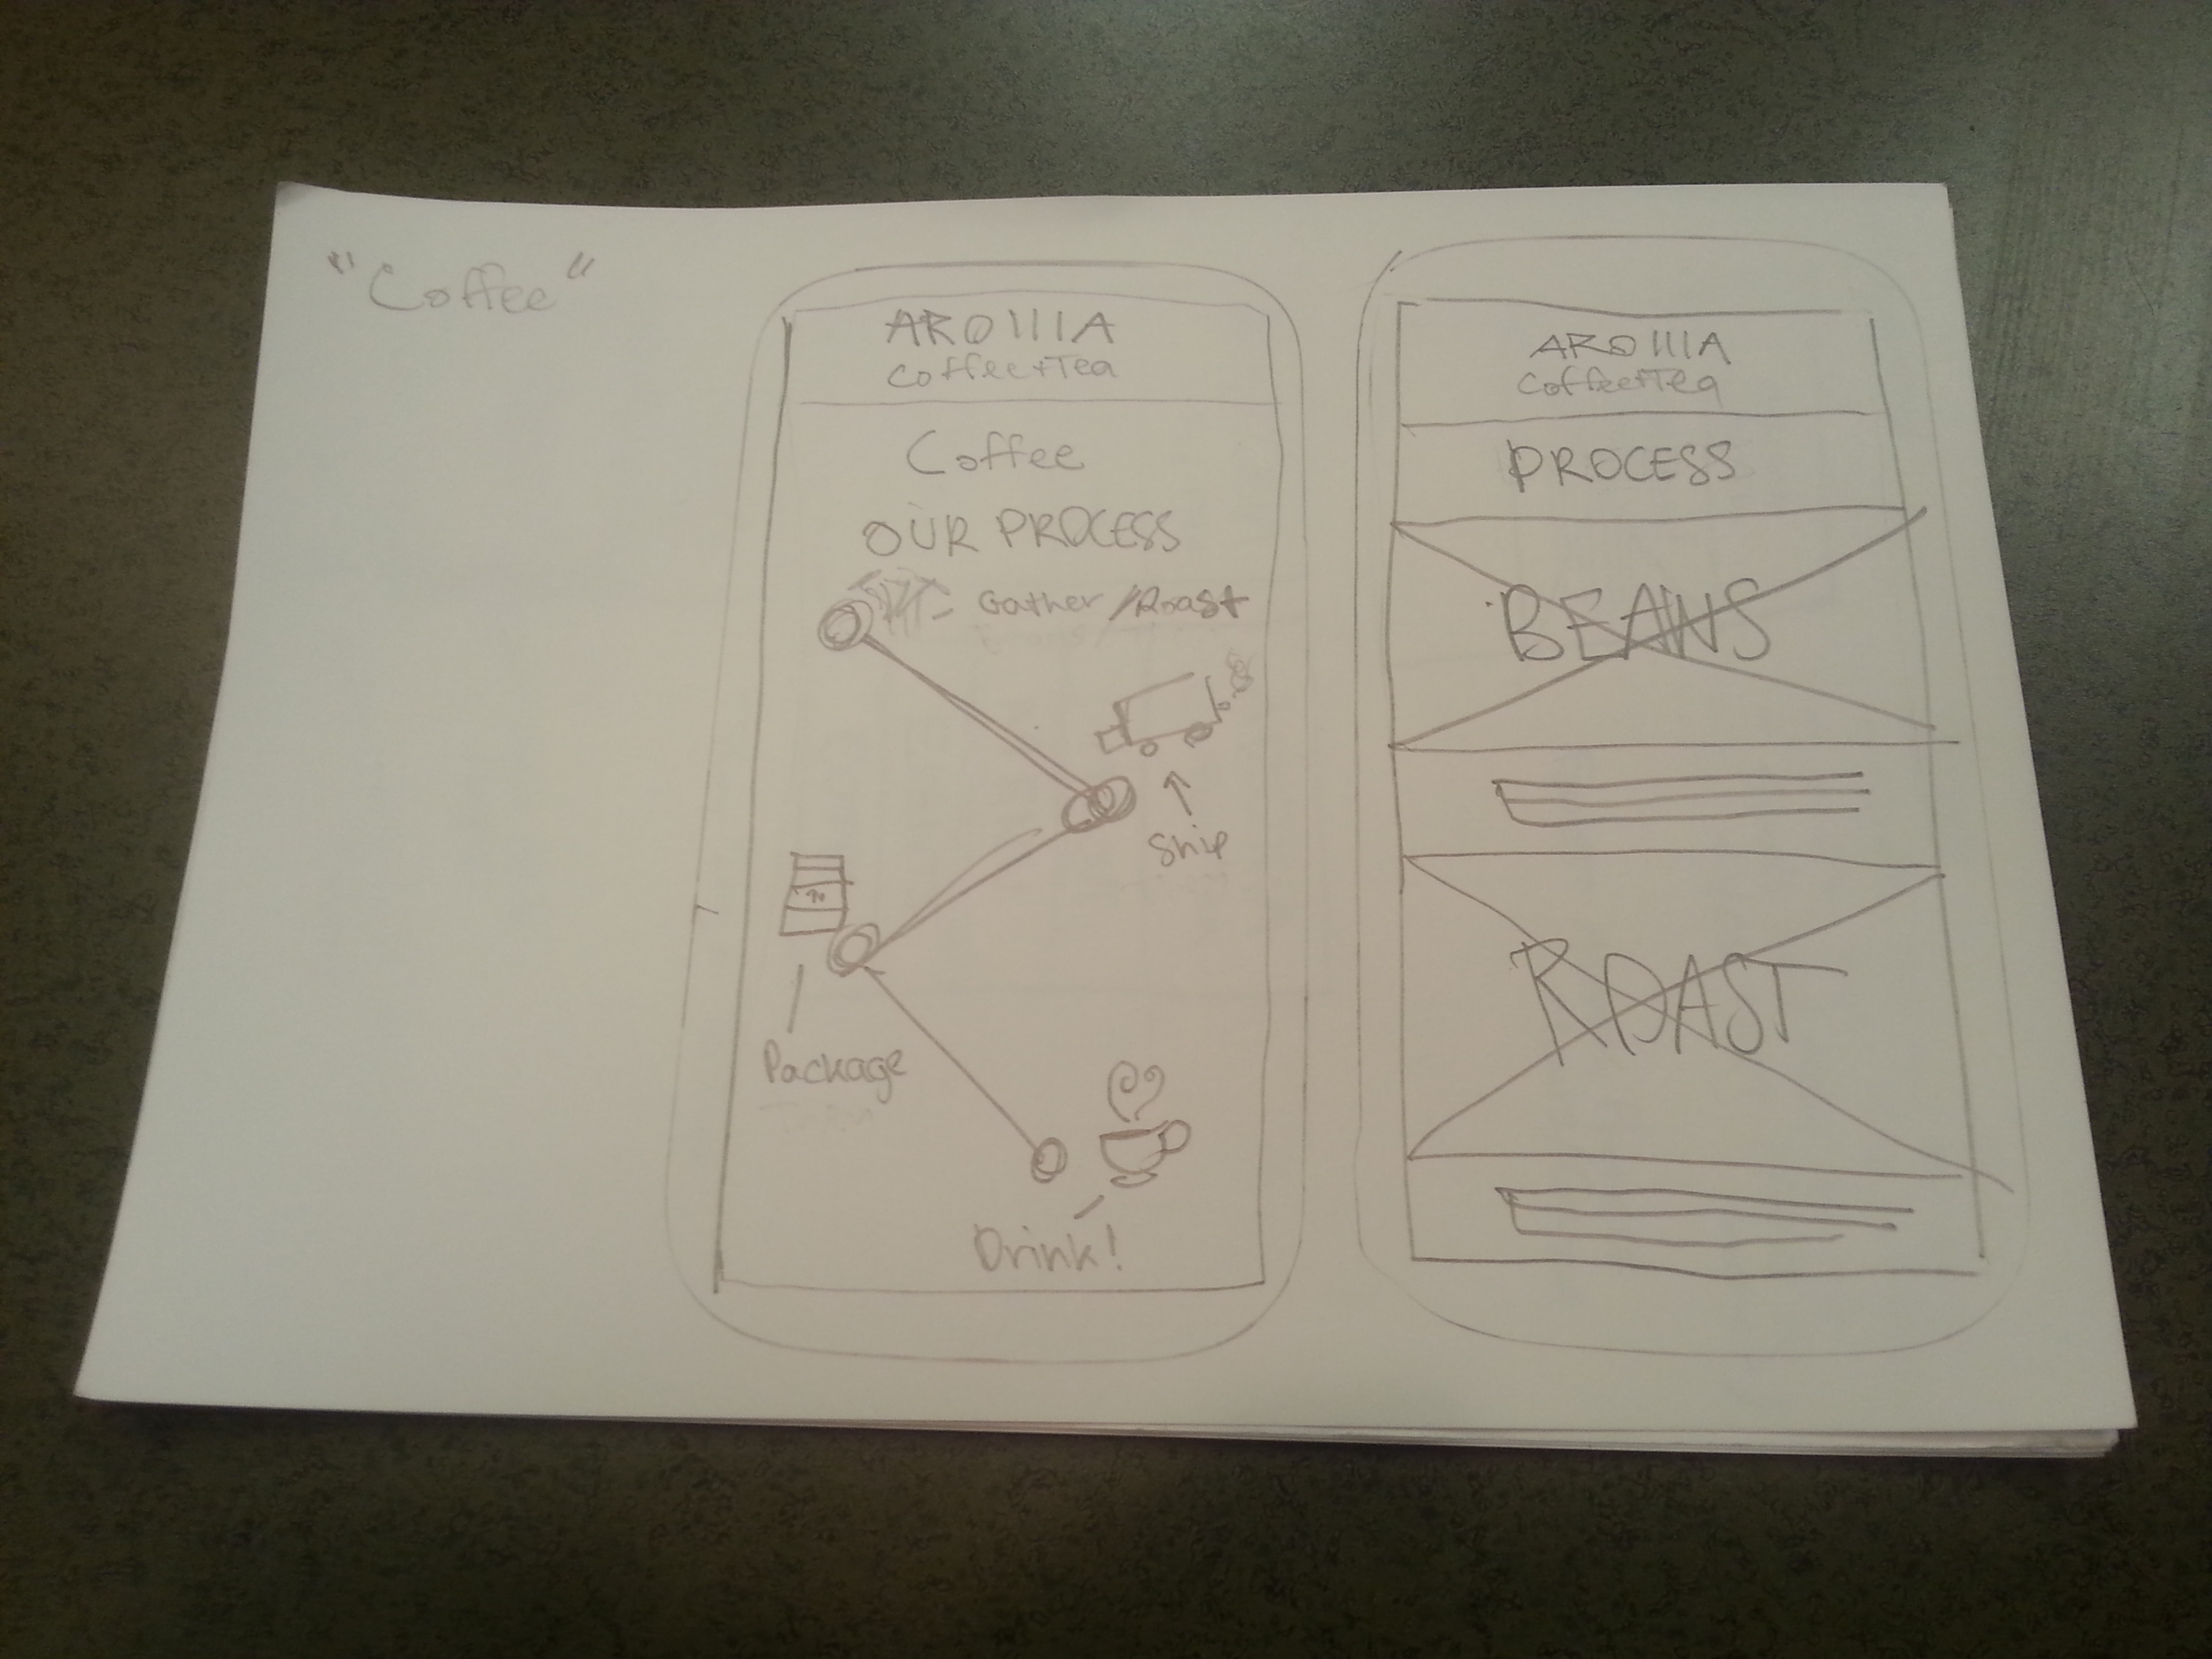 "Coffee"
AROMA
Coffee+Tea
Coffee
OUR PROCESS
Gather/Roast
Ship
Package
Drink!
AROMA
Coffee+Tea
PROCESS
BEANS
ROAST